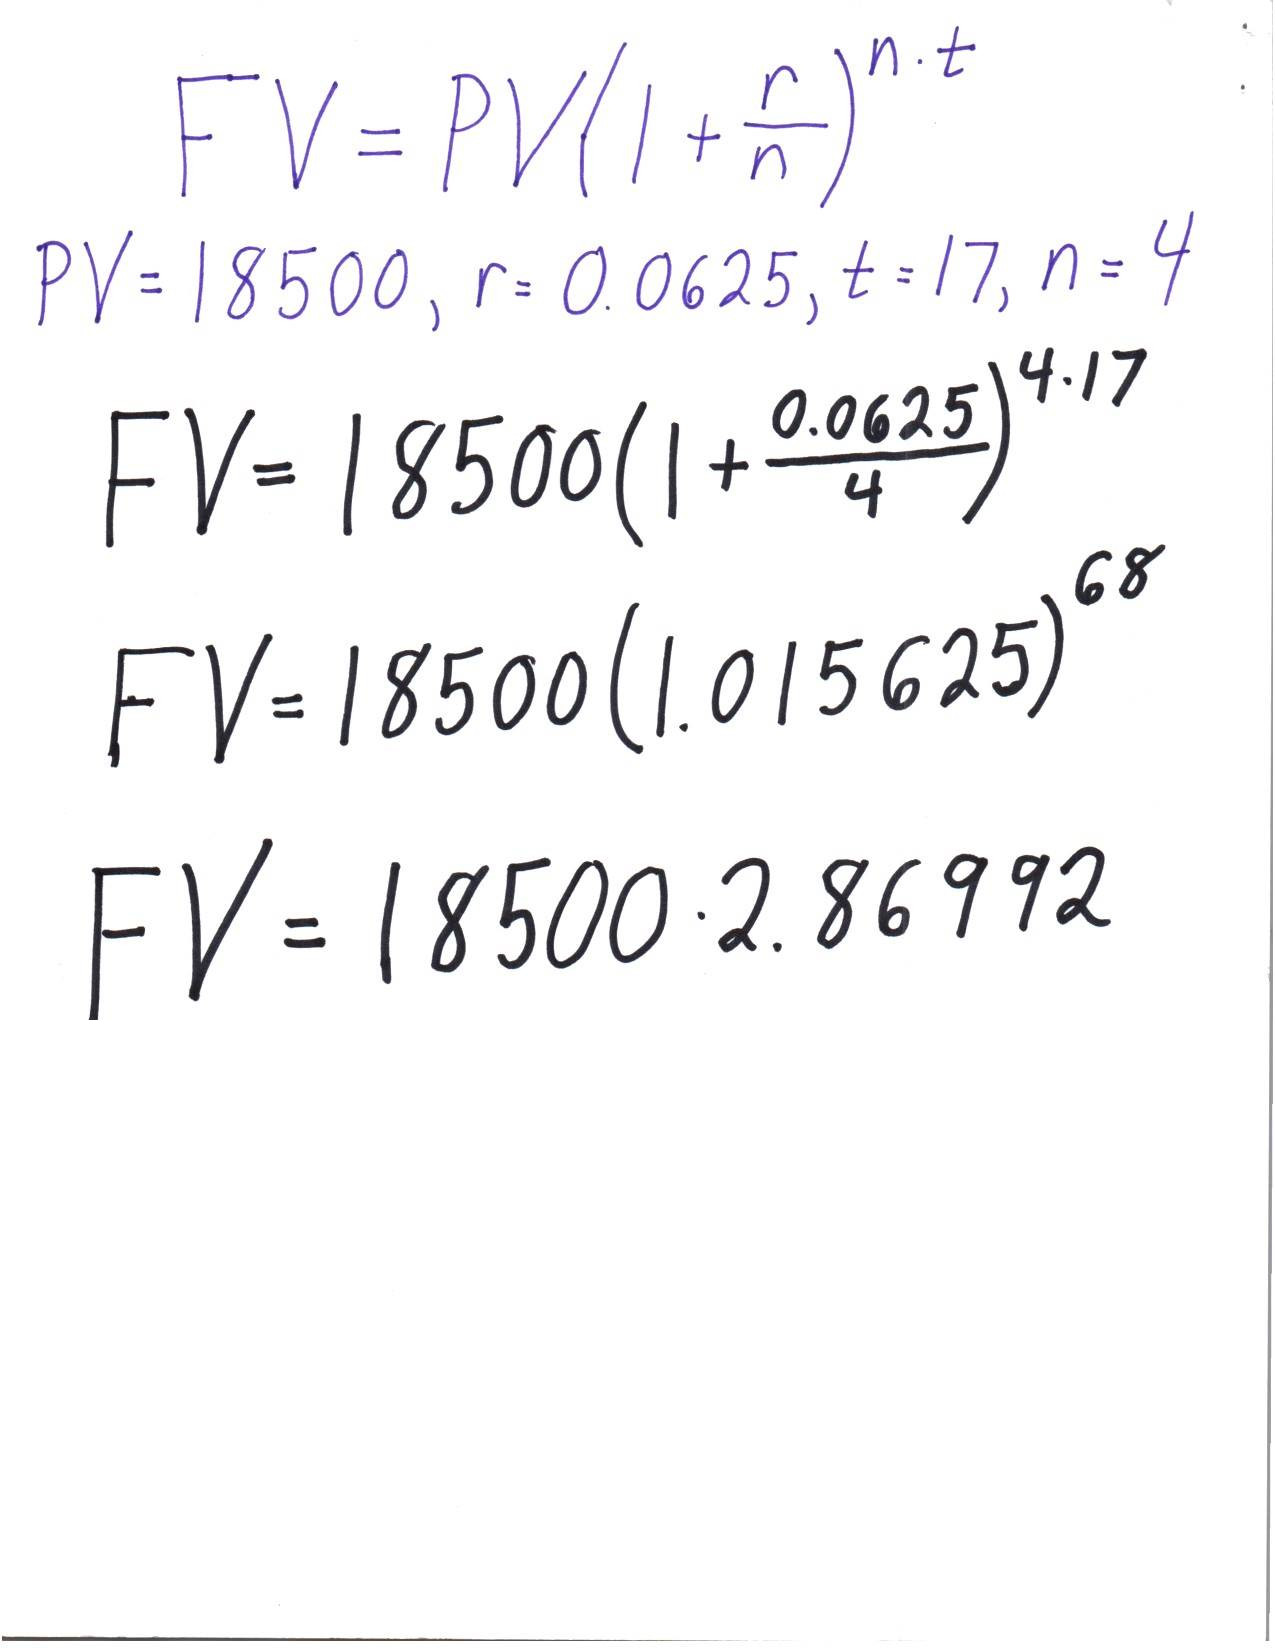 FV = PV(1 + r/n)^n·t
PV = 18500, r = 0.0625, t = 17, n = 4
FV = 18500(1 + 0.0625/4)^4·17
FV = 18500(1.015625)^68
FV = 18500·2.86992